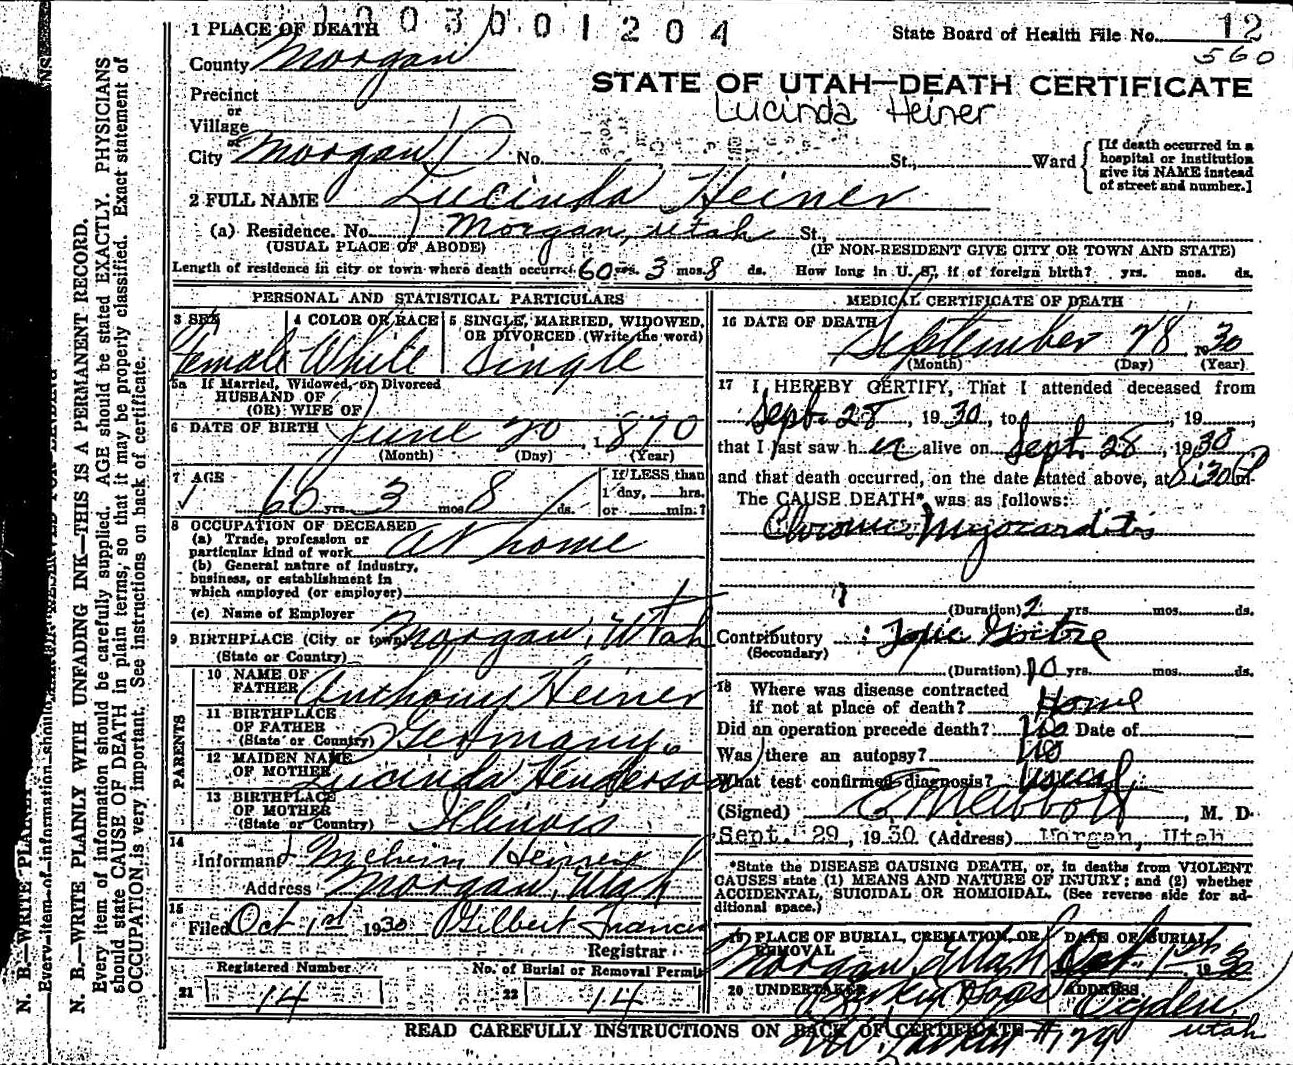 1003001204
State Board of Health File No. 12
560
1 PLACE OF DEATH
County Morgan
STATE OF UTAH—DEATH CERTIFICATE
Lucinda Heiner
Precinct
or
Village
or
City Morgan No. St., Ward
[If death occurred in a hospital or institution give its NAME instead of street and number.]
2 FULL NAME Lucinda Heiner
(a) Residence. No. Morgan, Utah St.,
(USUAL PLACE OF ABODE) (IF NON-RESIDENT GIVE CITY OR TOWN AND STATE)
Length of residence in city or town where death occurred 60 yrs. 3 mos. 8 ds. How long in U. S., if of foreign birth? yrs. mos. ds.
PERSONAL AND STATISTICAL PARTICULARS
3 SEX 4 COLOR OR RACE 5 SINGLE, MARRIED, WIDOWED, OR DIVORCED (Write the word)
Female White Single
5a If Married, Widowed, or Divorced
HUSBAND OF
(OR) WIFE OF
6 DATE OF BIRTH June 20, 1870
(Month) (Day) (Year)
7 AGE If LESS than
60 yrs. 3 mos 8 ds. 1 day, hrs.
or min.?
8 OCCUPATION OF DECEASED
(a) Trade, profession or
particular kind of work At home
(b) General nature of industry,
business, or establishment in
which employed (or employer)
(c) Name of Employer
9 BIRTHPLACE (City or town) Morgan, Utah
(State or Country)
PARENTS
10 NAME OF
FATHER Anthony Heiner
11 BIRTHPLACE
OF FATHER
(State or Country) Germany.
12 MAIDEN NAME
OF MOTHER Lucinda Henderson
13 BIRTHPLACE
OF MOTHER
(State or Country) Illinois
14
Informant Melvin Heiner
Address Morgan, Utah
15
Filed Oct 1st 1930 Gilbert Francis
Registrar
Registered Number No. of Burial or Removal Permit
21 14 22 14
MEDICAL CERTIFICATE OF DEATH
16 DATE OF DEATH September 28, 1930
(Month) (Day) (Year)
17 I HEREBY CERTIFY, That I attended deceased from
Sept. 28, 1930, to , 19 ;
that I last saw her alive on Sept. 28, 1930,
and that death occurred, on the date stated above, at 8:30 P m.
The CAUSE DEATH* was as follows:
Chronic Myocarditis
(Duration) 2 yrs. mos. ds.
Contributory : Toxic Goitre
(Secondary)
(Duration) 10 yrs. mos. ds.
18 Where was disease contracted
if not at place of death? Home
Did an operation precede death? no Date of
Was there an autopsy? no
What test confirmed diagnosis? usual
(Signed) Abbott, M. D.
Sept. 29, 1930 (Address) Morgan, Utah
*State the DISEASE CAUSING DEATH, or, in deaths from VIOLENT
CAUSES state (1) MEANS AND NATURE OF INJURY; and (2) whether
ACCIDENTAL, SUICIDAL OR HOMICIDAL. (See reverse side for ad-
ditional space.)
19 PLACE OF BURIAL, CREMATION, OR REMOVAL DATE OF BURIAL
Morgan, Utah Oct. 1st, 1930
20 UNDERTAKER ADDRESS
Larkin Sons Ogden
Utah
READ CAREFULLY INSTRUCTIONS ON BACK OF CERTIFICATE
Larkin #129
N. B.—WRITE PLAINLY WITH UNFADING INK—THIS IS A PERMANENT RECORD.
Every item of information should be carefully supplied. AGE should be stated EXACTLY. PHYSICIANS
should state CAUSE OF DEATH in plain terms, so that it may be properly classified. Exact statement of
OCCUPATION is very important. See instructions on back of certificate.